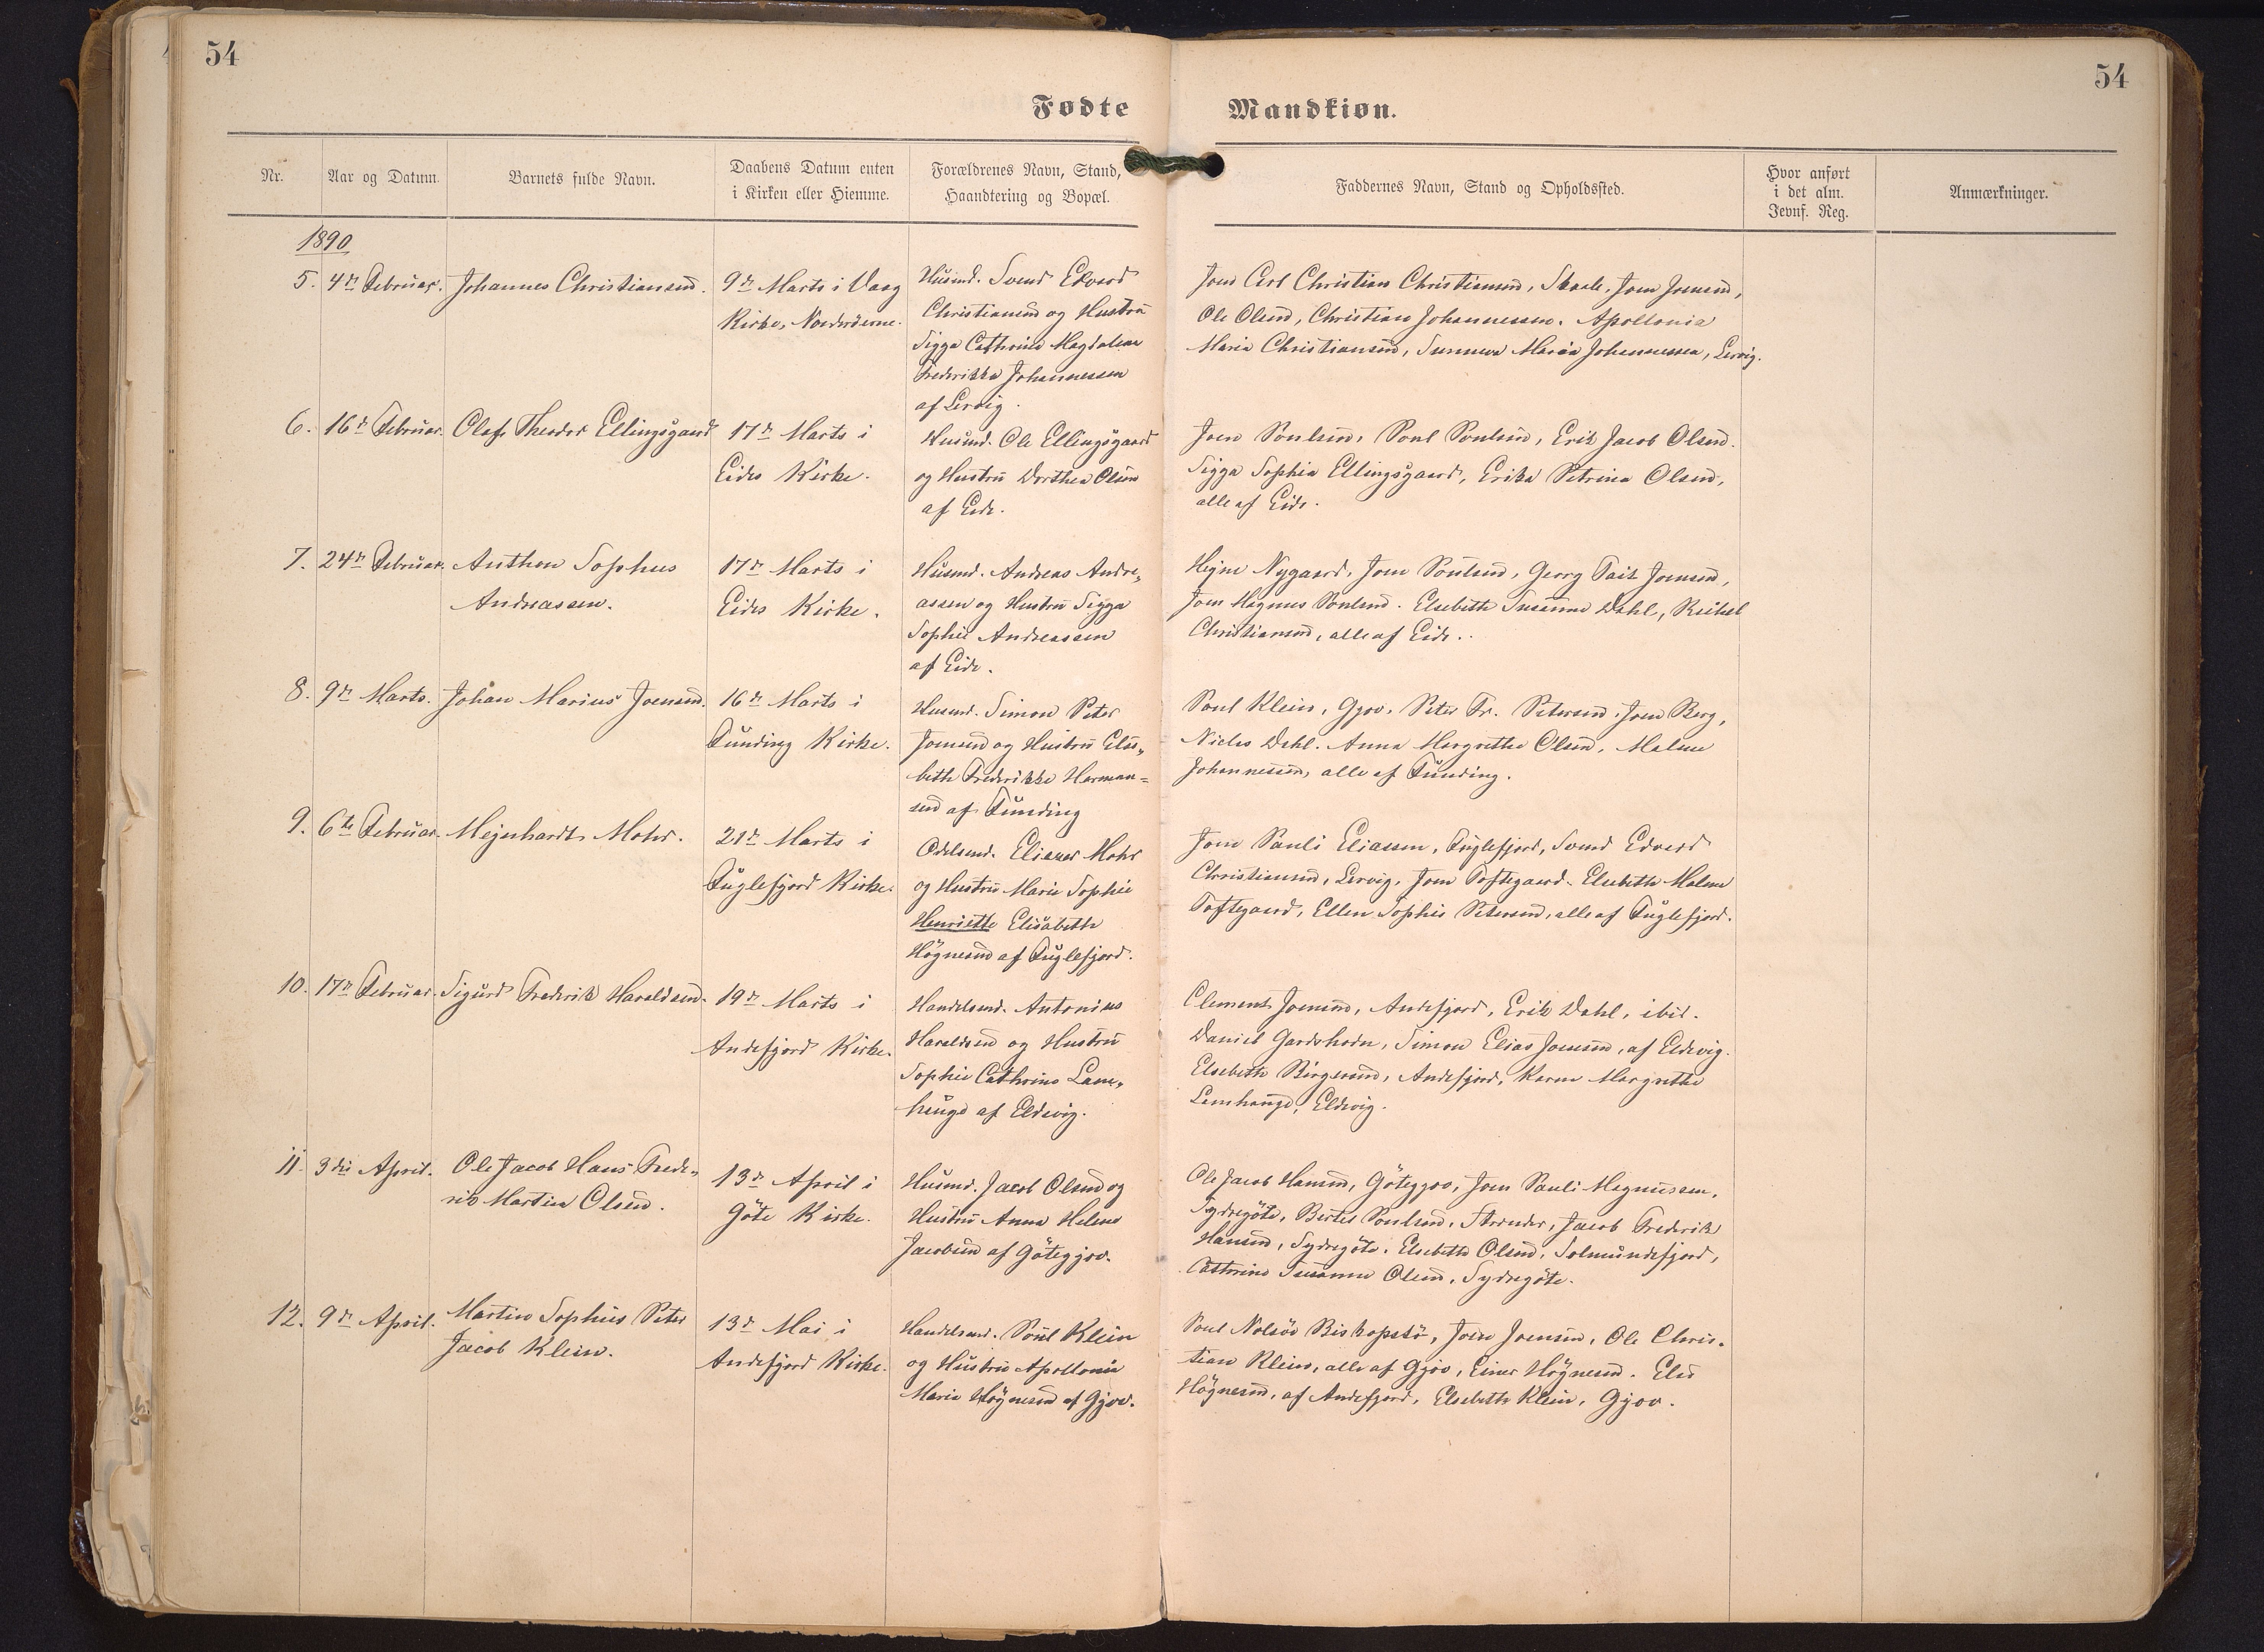 54
54
Fødte
Mandkiøn.
Nr.
Aar og Datum.
Barnets fulde Navn.
Daabens Datum enten
i Kirken eller Hiemme.
Forældrenes Navn, Stand,
Haandtering og Bopæl.
Faddernes Navn, Stand og Opholdssted.
Hvor anført
i det alm.
Jevnf. Reg.
Anmærkninger.
1890
5.
4de Februar.
Johannes Christiansen.
9de Marts i Vaag
Kirke, Norderøerne.
Husmd. Svend Edvard
Christiansen og Hustru
Sigga Cathrine Magdalene
Frederikka Johannessen
af Lervig.
Joen Carl Christian Christiansen, Skaale, Joen Joensen,
Ole Olsen, Christian Johannessen. Apollonia
Maria Christiansen, Sunneva Maria Johannessen, Lervig.
6.
16de Februar.
Olaf Theodor Ellingsgaard
17de Marts i
Eides Kirke.
Husmd. Ole Ellingsgaard
og Hustru Dorthea Olsen
af Eide.
Joen Poulsen, Poul Poulsen, Erik Jacob Olsen.
Sigga Sophia Ellingsgaard, Erika Petrina Olsen,
alle af Eide.
7.
24de Februar.
Anthon Sophus
Andreassen.
17de Marts i
Eides Kirke.
Husmd. Andreas Andre„
assen og Hustru Sigga
Sophie Andreassen
af Eide.
Hejne Nygaard, Joen Poulsen, Georg Joensen,
Joen Magnus Poulsen. Elsebeth Susanne Dahl,
Christiansen, alle af Eide.
8.
9de Marts.
Johan Marius Joensen.
16de Marts i
Funding Kirke.
Husmd. Simon Peter
Joensen og Hustru Else„
beth Frederikke Herman=
sen af Funding
Poul Klein, Gjov. Peter Fr. Petersen, Joen Berg,
Niclas Dahl. Anna Margrethe Olsen, Malene
Johannessen, alle af Funding.
9.
6te Februar.
Mejnhardt Mohr.
21de Marts i
Fuglefjord Kirke.
Odelsmd. Eliesar Mohr
og Hustru Marie Sophie
Henriette Elisabeth
Högnesen af Fuglefjord.
Joen Pauli Eliassen, Fuglefjord, Svend Edvard
Christiansen, Lervig, Joen Toftegaard. Elsebeth Malene
Toftegaard, Ellen Sophie Petersen, alle af Fuglefjord.
10.
17de Februar.
Sigurd Frederik Haraldsen.
19de Marts i
Andefjord Kirke.
Handelsmd. Antonius
Haraldsen og Hustru
Sophie Cathrine Lam„
hauge af Eldevig.
Clement Joensen, Andefjord, Erik Dahl, ibid.
Daniel Gardshodn, Simon Elias Joensen, af Eldevig.
Elsebeth Birgersen, Andefjord, Karen Margrethe
Lamhauge, Eldevig.
11.
3die April.
Ole Jacob Hans Frede„
rik Martin Olsen.
13de April i
Göte Kirke.
Husmd. Jacob Olsen og
Hustru Anna Helene
Jacobsen af Götegjov.
Ole Jacob Hansen, Götegjov, Joen Pauli Magnussen,
Sydregöte, Poulsen, Strender, Jacob Frederik
Hansen, Sydregöte. Elsebeth Olsen, Solmundefjord,
Cathrine Susanne Olsen, Sydregöte.
12.
9de April.
Martin Sophus Peter
Jacob Klein.
13de Mai i
Andefjord Kirke.
Handelsmd. Poul Klein
og Hustru Apollonia
Maria Högnesen af Gjov.
Poul Nolsöe Biskopstö, Joen Joensen, Ole Chris-
tian Klein, alle af Gjov, Einer Högnesen. Else
Högnesen, af Andefjord, Elsebeth Klein, Gjov.